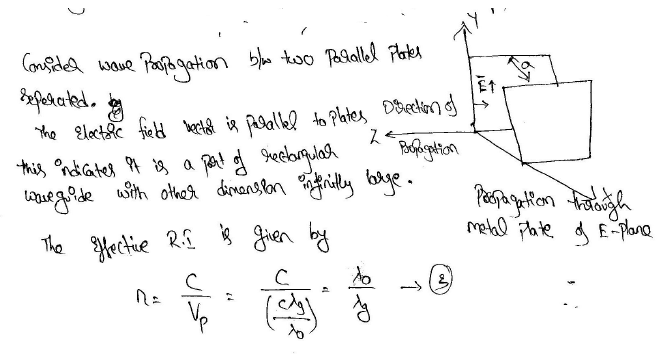 Consider wave Propagation b/w two Parallel Plates
Seperated.
The Electric field vector is parallel to plates
this indicates it is a part of rectangular
waveguide with other dimension infinitly large.
The Effective R.I is given by
n = C / Vp = C / (cλg / λ0) = λ0 / λg → (3)
Y
a
E↑
Direction of
Z
Propagation
Propagation through
metal plate of E-plane